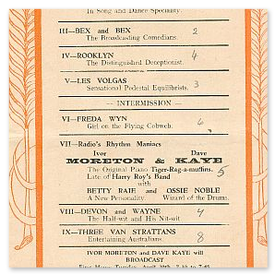 In Song and Dance Speciality.
III—BEX and BEX 2
The Broadcasting Comedians.
IV—ROOKLYN 4
The Distinguished Deceptionist.
V—LES VOLGAS 3
Sensational Pedestal Equilibrists.
— INTERMISSION —
VI—FREDA WYN 6
Girl on the Flying Cobweb.
VII—Radio's Rhythm Maniacs
Ivor Dave
MORETON & KAYE
The Original Piano Tiger-Rag-a-muffins. 5
Late of Harry Roy's Band
with
BETTY RAIE and OSSIE NOBLE
A New Personality Wizard of the Drums.
VIII—DEVON and WAYNE 4
The Half-wit and His Nit-wit
IX—THREE VAN STRATTANS
Entertaining Australians. 8
IVOR MORETON and DAVE KAYE will
BROADCAST